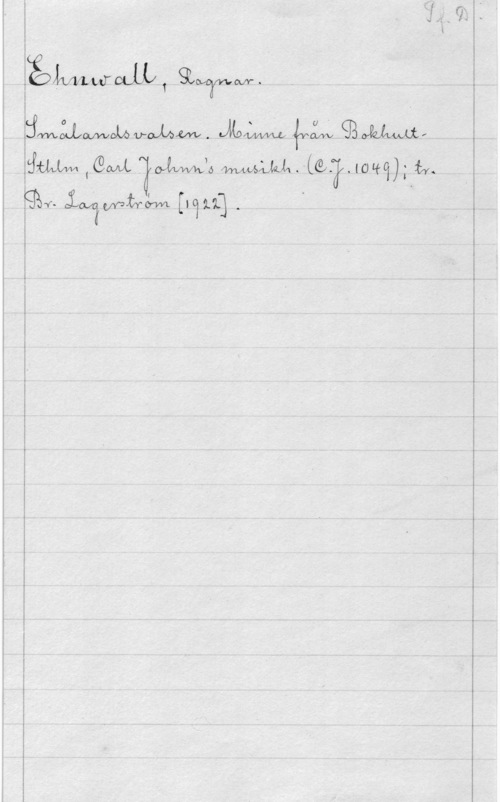 Pf. D.
Ehnwall, Ragnar.
Smålandsvalsen. Minne från Bokhult.
Sthlm, Carl Johnn's musikh. (C.J. 1049); tr.
Br. Lagerström [1922].